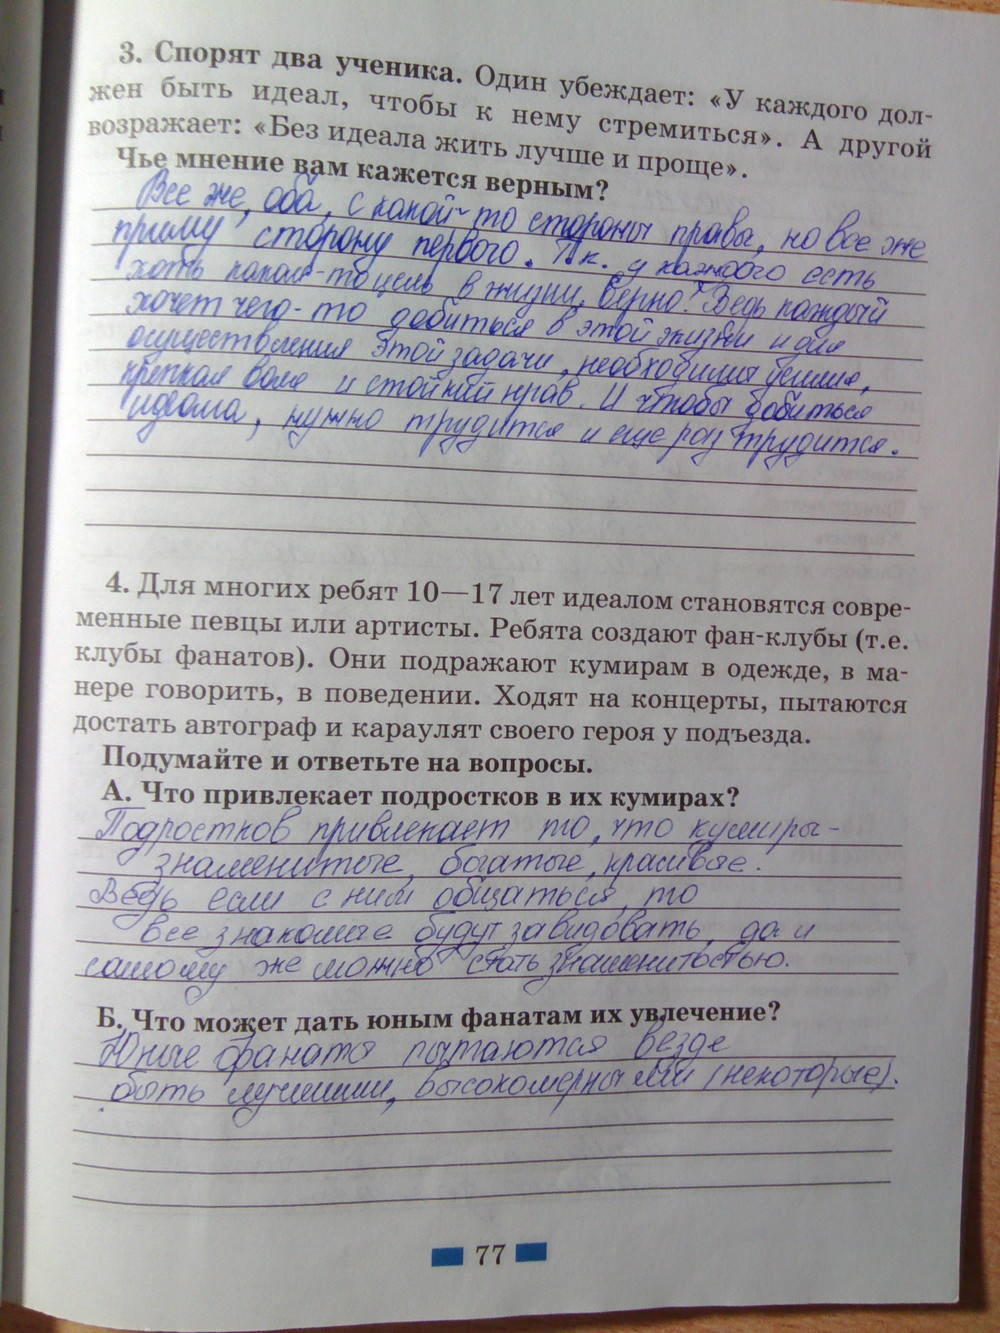 3. Спорят два ученика. Один убеждает: «У каждого дол-
жен быть идеал, чтобы к нему стремиться». А другой
возражает: «Без идеала жить лучше и проще».
Чье мнение вам кажется верным?
Все же, оба, с какой-то стороны правы, но все же
приму сторону первого. Т.к. у каждого есть
хоть какая-то цель в жизни, верно? Ведь каждый
хочет чего-то добиться в этой жизни и для
осуществления этой задачи, необходимы усилия,
крепкая воля и стойкий нрав. И чтобы добиться
идеала, нужно трудится и еще раз трудится.
4. Для многих ребят 10—17 лет идеалом становятся совре-
менные певцы или артисты. Ребята создают фан-клубы (т.е.
клубы фанатов). Они подражают кумирам в одежде, в ма-
нере говорить, в поведении. Ходят на концерты, пытаются
достать автограф и караулят своего героя у подъезда.
Подумайте и ответьте на вопросы.
А. Что привлекает подростков в их кумирах?
Подростков привлекает то, что кумиры-
знаменитые, богатые, красивые.
Ведь если с ним общаться, то
все знакомые будут завидовать, да и
самому же можно стать знаменитостью.
Б. Что может дать юным фанатам их увлечение?
Юные фанаты пытаются везде
быть лучшими, высокомерными (некоторые).
77